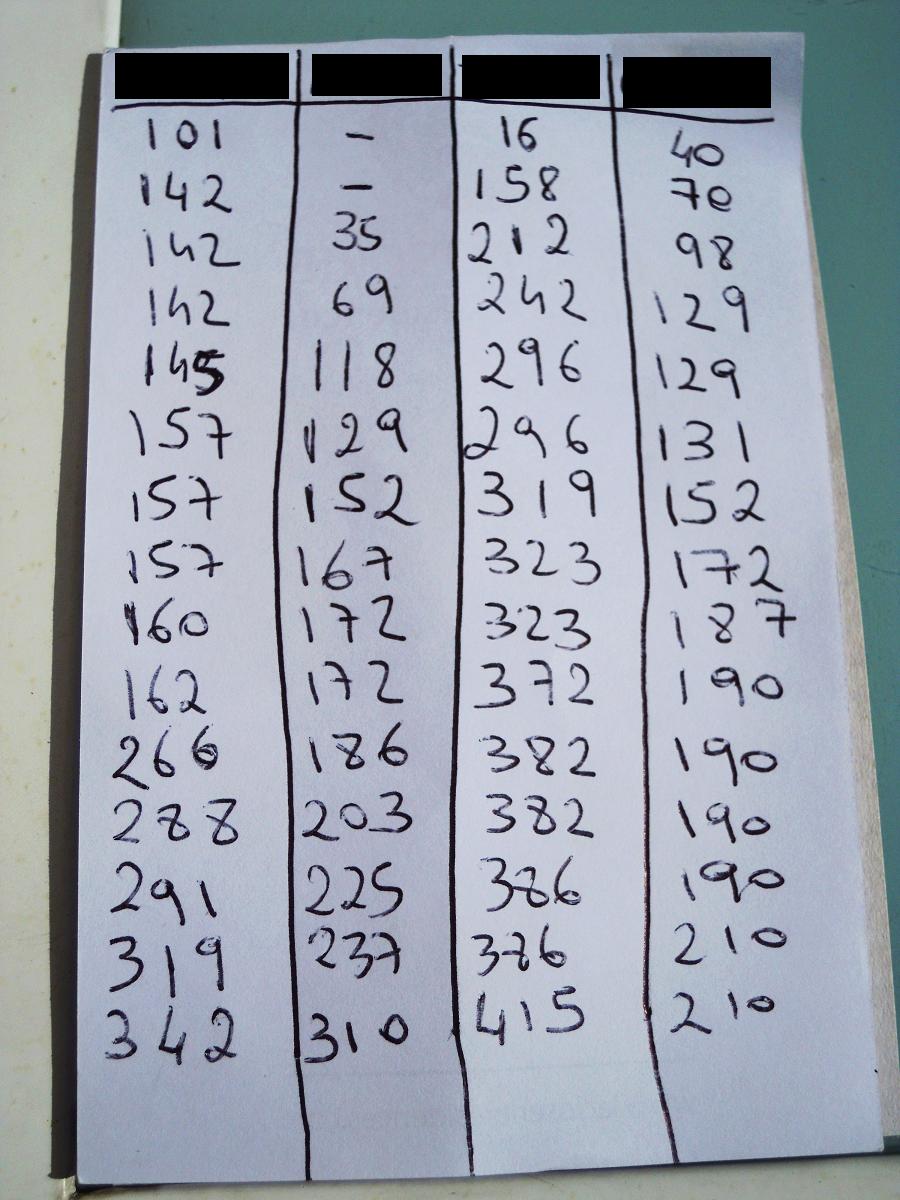 101 - 16 40
142 - 158 70
142 35 212 98
142 69 242 129
145 118 296 129
157 129 296 131
157 152 319 152
157 167 323 172
160 172 323 187
162 172 372 190
266 186 382 190
288 203 382 190
291 225 386 190
319 237 386 210
342 310 415 210